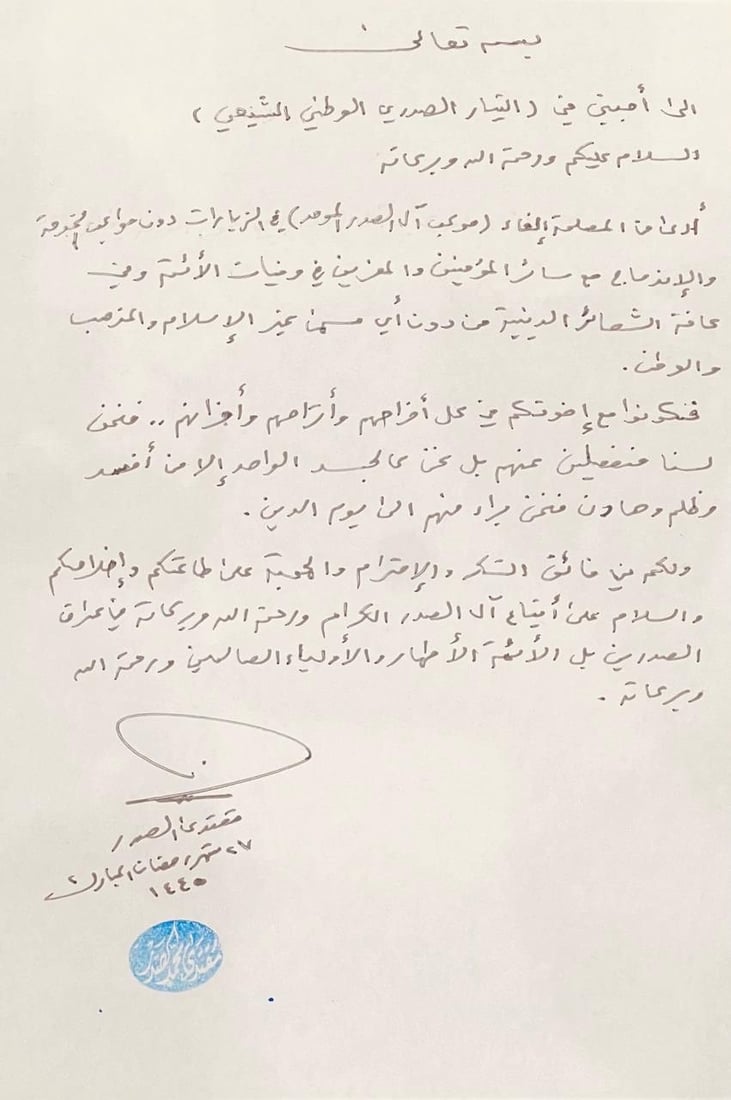 بسمه تعالى
الى أحبتي في (التيار الصدري الوطني الشيعي)
السلام عليكم ورحمة الله وبركاته
أرى من المصلحة إلغاء (موكب آل الصدر الموحد) في الزيارات دون مواكب الخدمة
والإندماج مع سائر المؤمنين والمعزين في وفيات الأئمة وفي
كافة الشعائر الدينية من دون أي مسمى غير الإسلام والمذهب
والوطن.
فتكونوا مع إخوتكم في كل أفراحهم وأتراحهم وأحزانهم .. فنحن
لسنا منفصلين عنهم بل نحن كالجسد الواحد إلا من أفسد
وظلم وهادن فنحن براء منهم الى يوم الدين.
ولكم مني فائق الشكر والإحترام والمحبة على طاعتكم وإخلاصكم
والسلام على أتباع آل الصدر الكرام ورحمة الله وبركاته في عراق
الصدرين بل الأئمة الأطهار والأولياء الصالحين ورحمة الله
وبركاته.
مقتدى الصدر
٢٧ شهر رمضان المبارك
١٤٤٥